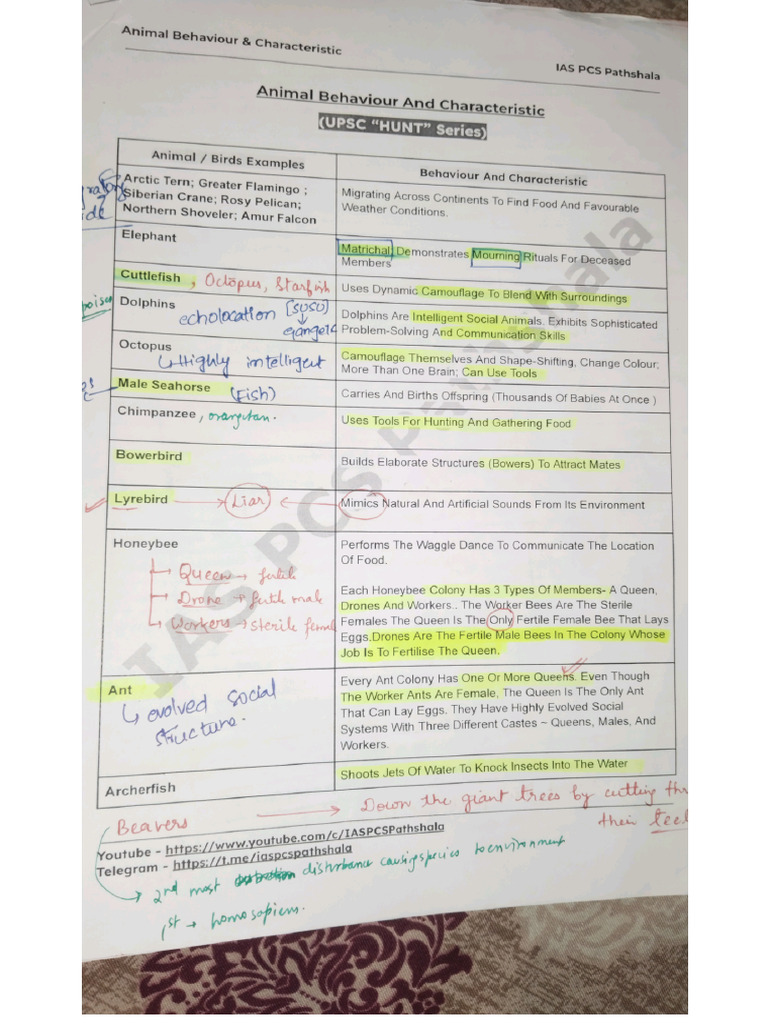 Animal Behaviour & Characteristic
IAS PCS Pathshala
Animal Behaviour And Characteristic
(UPSC "HUNT" Series)
Animal / Birds Examples
Behaviour And Characteristic
Arctic Tern; Greater Flamingo ;
Siberian Crane; Rosy Pelican;
Northern Shoveler; Amur Falcon
Migrating Across Continents To Find Food And Favourable
Weather Conditions.
Elephant
Matrichal, Demonstrates Mourning Rituals For Deceased
Members
Cuttlefish , Octopus, Starfish
Uses Dynamic Camouflage To Blend With Surroundings
Dolphins echolocation [SUSU]
Dolphins Are Intelligent Social Animals. Exhibits Sophisticated
Problem-Solving And Communication Skills
Octopus
Highly intelligent
Camouflage Themselves And Shape-Shifting, Change Colour;
More Than One Brain; Can Use Tools
Male Seahorse (Fish)
Carries And Births Offspring (Thousands Of Babies At Once )
Chimpanzee, orangutan.
Uses Tools For Hunting And Gathering Food
Bowerbird
Builds Elaborate Structures (Bowers) To Attract Mates
Lyrebird → Liar ←
Mimics Natural And Artificial Sounds From Its Environment
Honeybee
→ Queen → fertile
→ Drone → fertile male
→ Workers → sterile female
Performs The Waggle Dance To Communicate The Location
Of Food.
Each Honeybee Colony Has 3 Types Of Members- A Queen,
Drones And Workers.. The Worker Bees Are The Sterile
Females The Queen Is The Only Fertile Female Bee That Lays
Eggs.Drones Are The Fertile Male Bees In The Colony Whose
Job Is To Fertilise The Queen.
Ant
evolved social
structure.
Every Ant Colony Has One Or More Queens. Even Though
The Worker Ants Are Female, The Queen Is The Only Ant
That Can Lay Eggs. They Have Highly Evolved Social
Systems With Three Different Castes ~ Queens, Males, And
Workers.
Archerfish
Shoots Jets Of Water To Knock Insects Into The Water
Beavers → Down the giant trees by cutting
their
Youtube - https://www.youtube.com/c/IASPCSPathshala
Telegram - https://t.me/iaspcspathshala
→ 2nd most disturbance causing species to environment
1st → homosapiens.
IAS PCS Pathshala